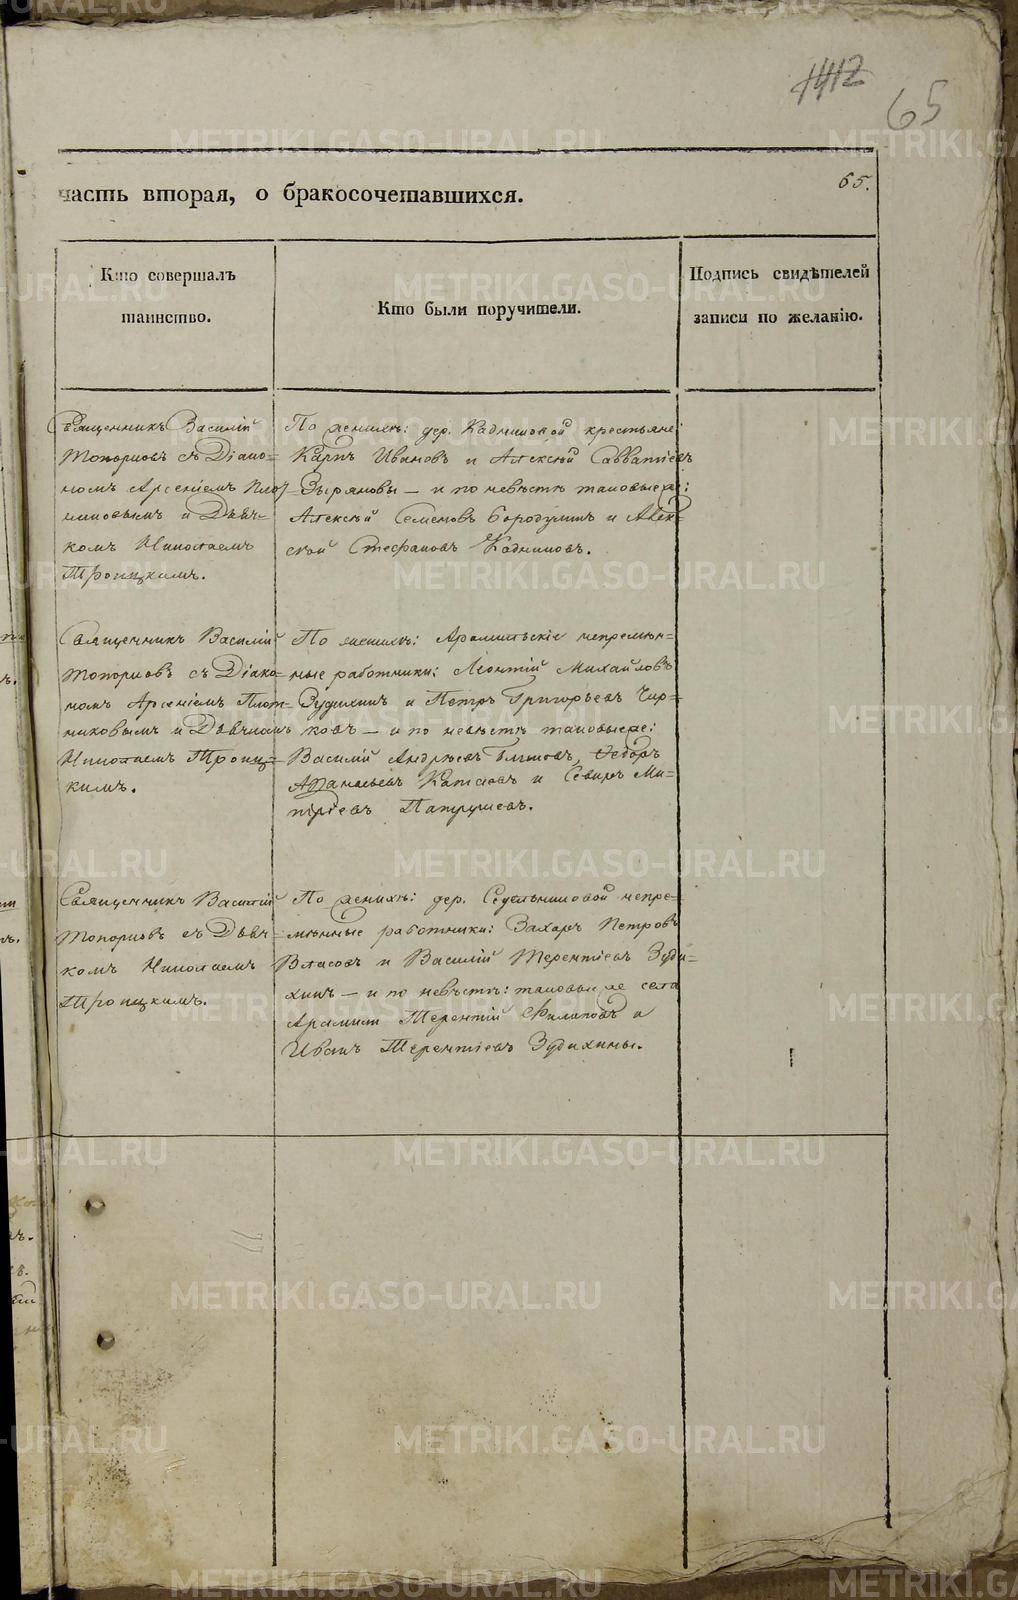 1412
65
65.
часть вторая, о бракосочетавшихся.
Кто совершалъ
таинство.
Кто были поручители.
Подпись свидѣтелей
записи по желанію.
Священникъ Василій
Топорковъ съ Діако-
номъ Арсеніемъ Плот-
никовымъ и Дьяч-
комъ Николаемъ
Троицкимъ.
По женихѣ: дер. Кадниковой крестьяне:
Карпъ Ивановъ и Алексѣй Савватіевъ
Зыряновы — и по невѣстѣ таковые же:
Алексѣй Семеновъ Бородулинъ и Алек-
сѣй Стефановъ Кадниковъ.
Священникъ Василій
Топорковъ съ Діако-
номъ Арсеніемъ Плот-
никовымъ и Дьячкомъ
Николаемъ Троиц-
кимъ.
По женихѣ: Арамильскіе непремѣн-
ные работники: Леонтій Михайловъ
и Петръ Григорьевъ
— и по невѣстѣ таковые же:
Василій Андреевъ Ѳедоръ
Аѳанасьевъ и
Патрушевъ.
Священникъ Василій
Топорковъ съ Дьяч-
комъ Николаемъ
Троицкимъ.
По женихѣ: дер. Седельниковой непре-
мѣнные работники: Захаръ Петровъ
Власовъ и Василій Терентіевъ Зуди-
хинъ — и по невѣстѣ: таковые же села
Арамили Терентій Филиповъ и
Иванъ Терентіевъ Зудихины.
METRIKI.GASO-URAL.RU